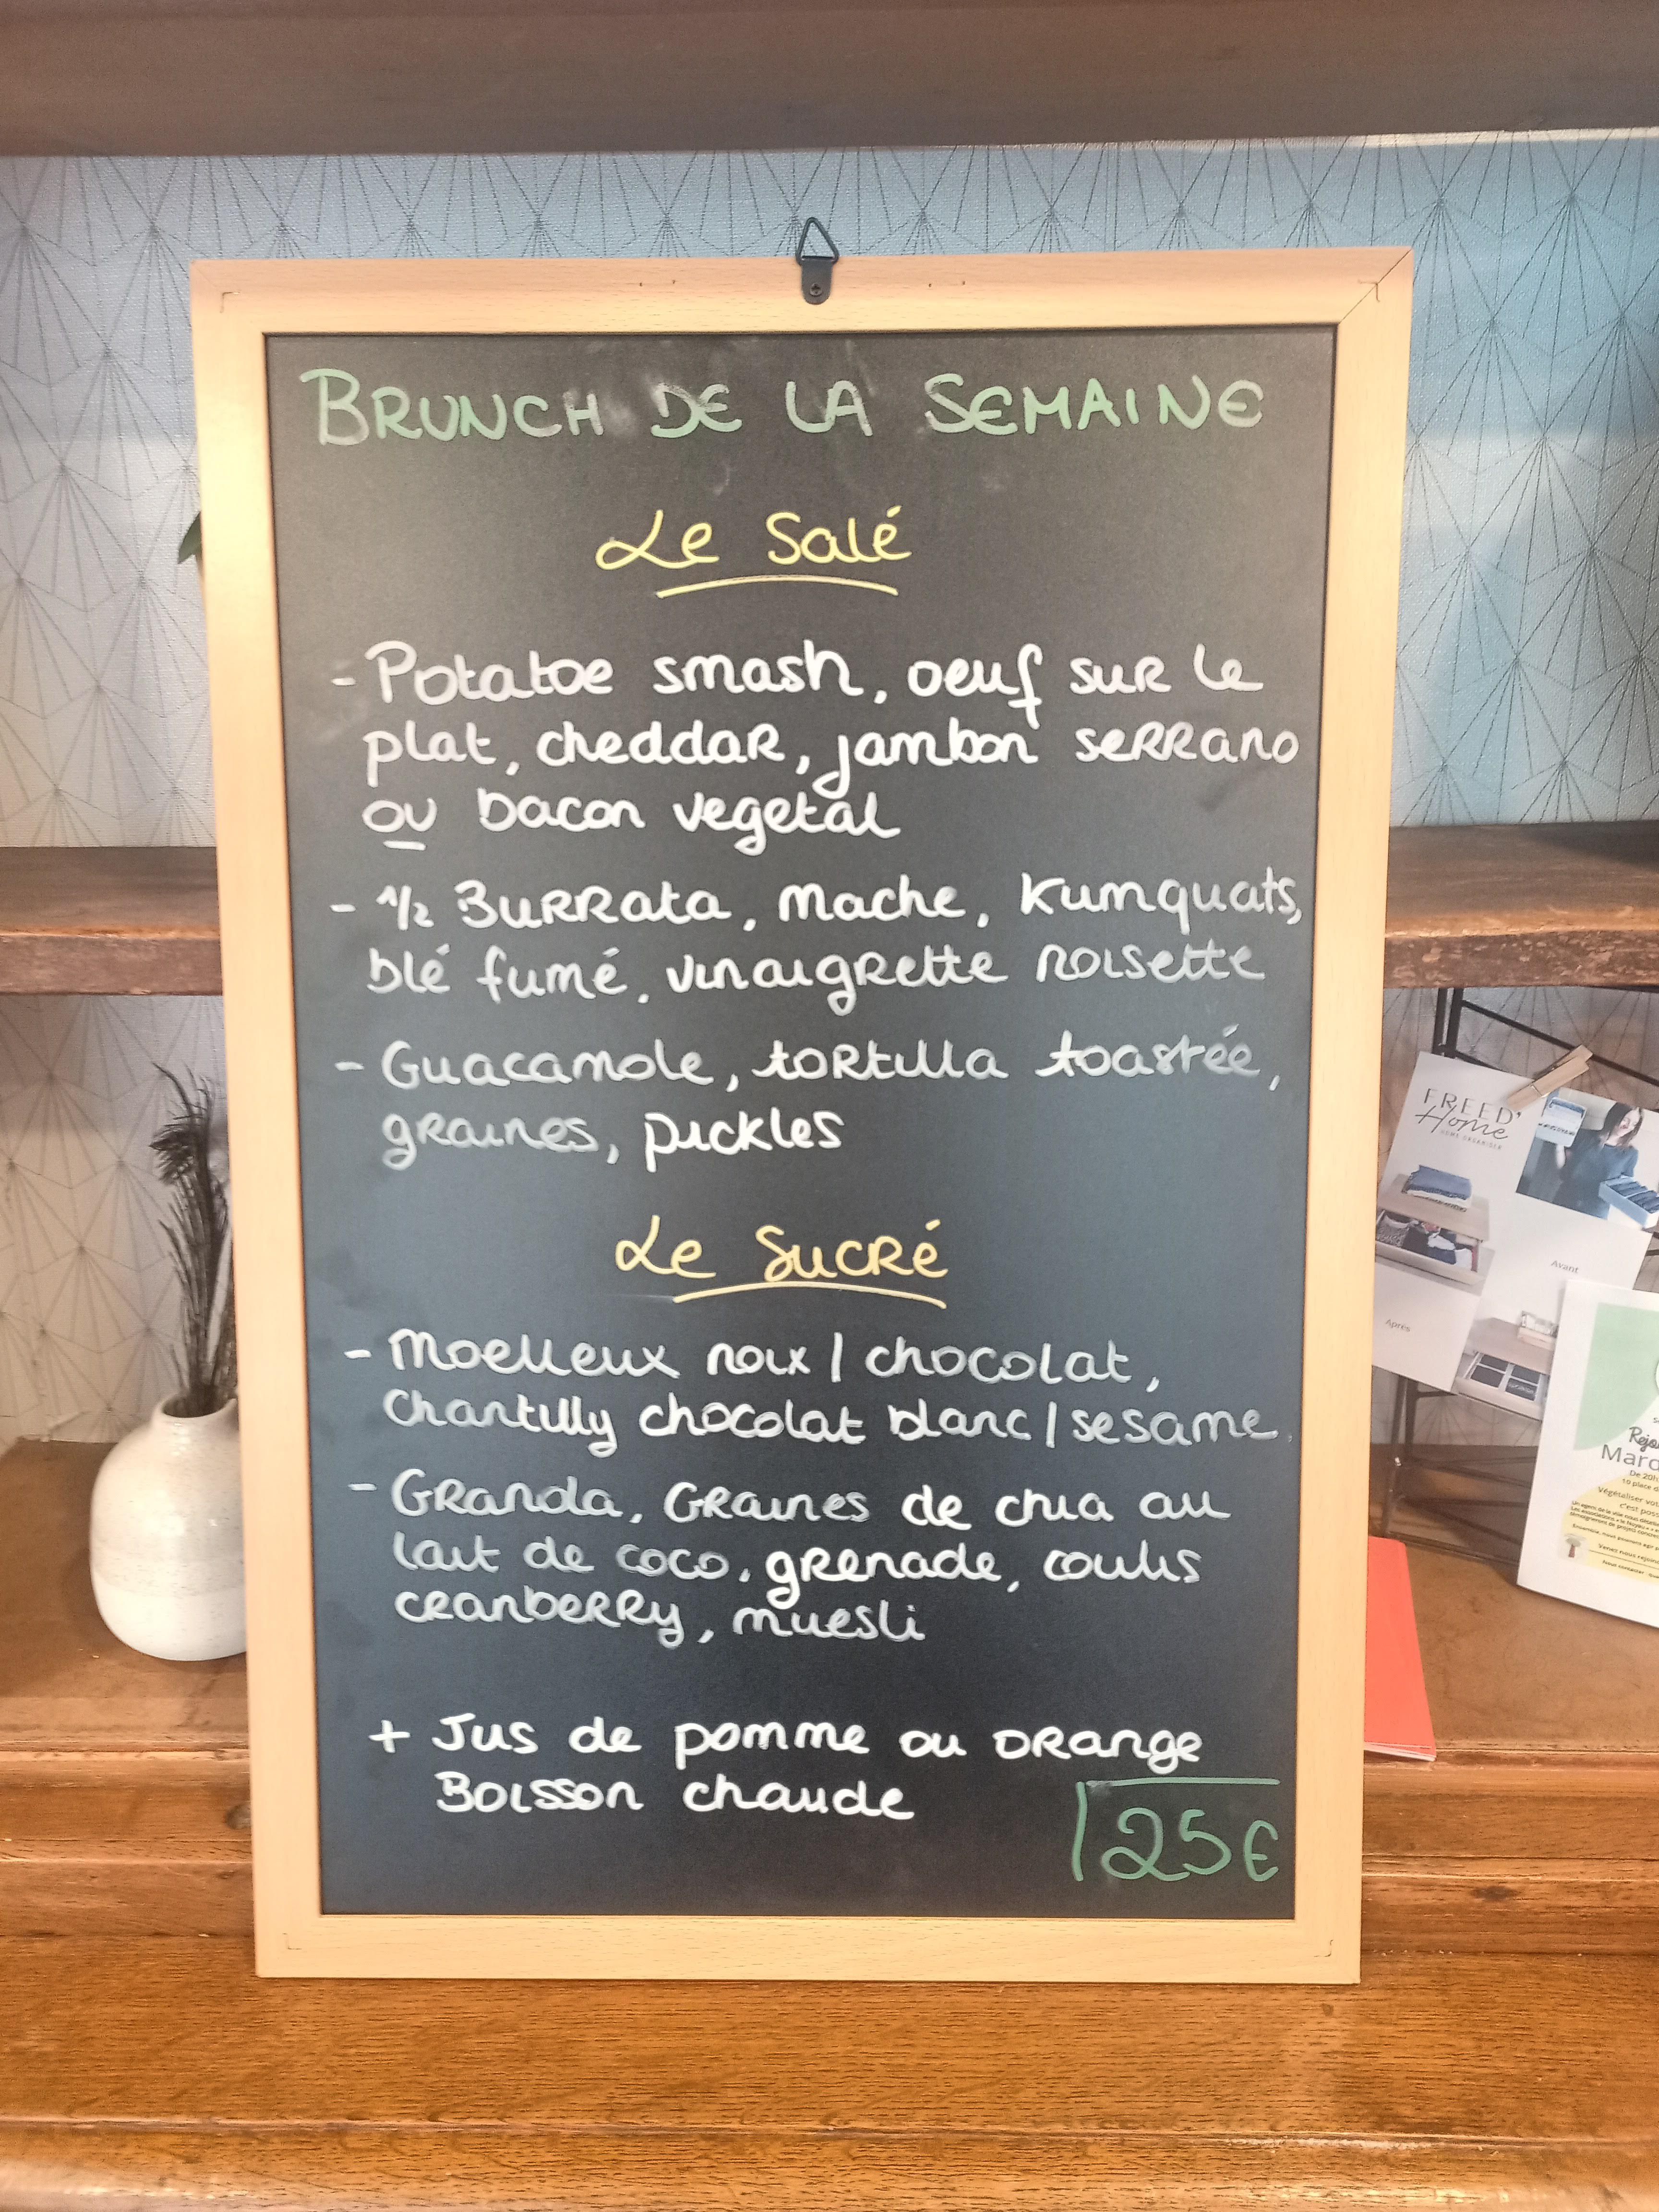 BRUNCH DE LA SEMAINE
Le Salé
- Potatoe smash, oeuf sur le
plat, cheddar, jambon serrano
ou bacon vegetal
- 1/2 Burrata, mache, Kumquats,
blé fumé, vinaigrette noisette
- Guacamole, tortilla toastée,
graines, pickles
Le Sucré
- Moelleux noix / chocolat,
Chantilly chocolat blanc / sesame
- Granola, Graines de chia au
lait de coco, grenade, coulis
cranberry, muesli
+ Jus de pomme ou orange
Boisson chaude
25€
FREED'
Home
HOME ORGANISER
Avant
Après
De 20h
Végétaliser
c'est